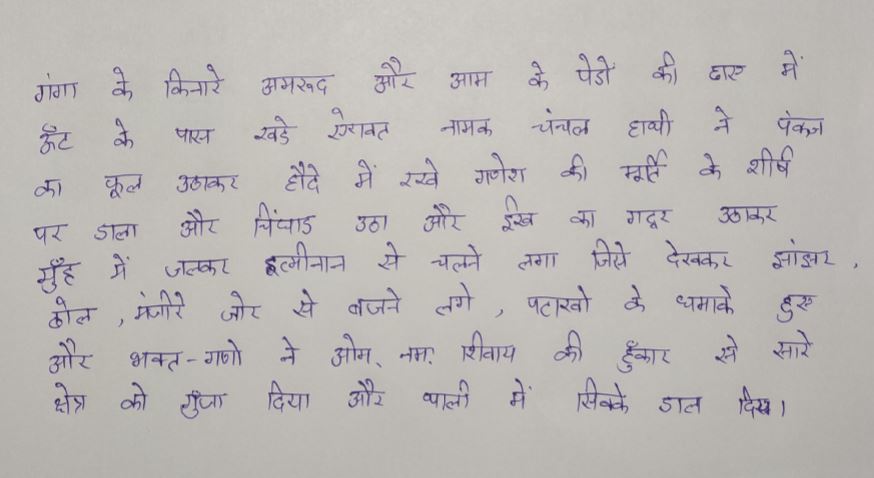 गंगा के किनारे अमरूद और आम के पेडों की छाए में
ऊँट के पास खडे ऐरावत नामक चंचल हाथी ने पंकज
का फूल उठाकर हौदे में रखे गणेश की मूर्ति के शीर्ष
पर डाला और चिंघाड उठा और ईख का गट्ठर उठाकर
मुँह में डालकर इत्मीनान से चलने लगा जिसे देखकर झांझर,
ढोल, मंजीरे जोर से बजने लगे, पटाखो के धमाके हुए
और भक्त-गणो ने ओम. नम: शिवाय की हुँकार से सारे
क्षेत्र को गुंजा दिया और थाली में सिक्के डाल दिए।